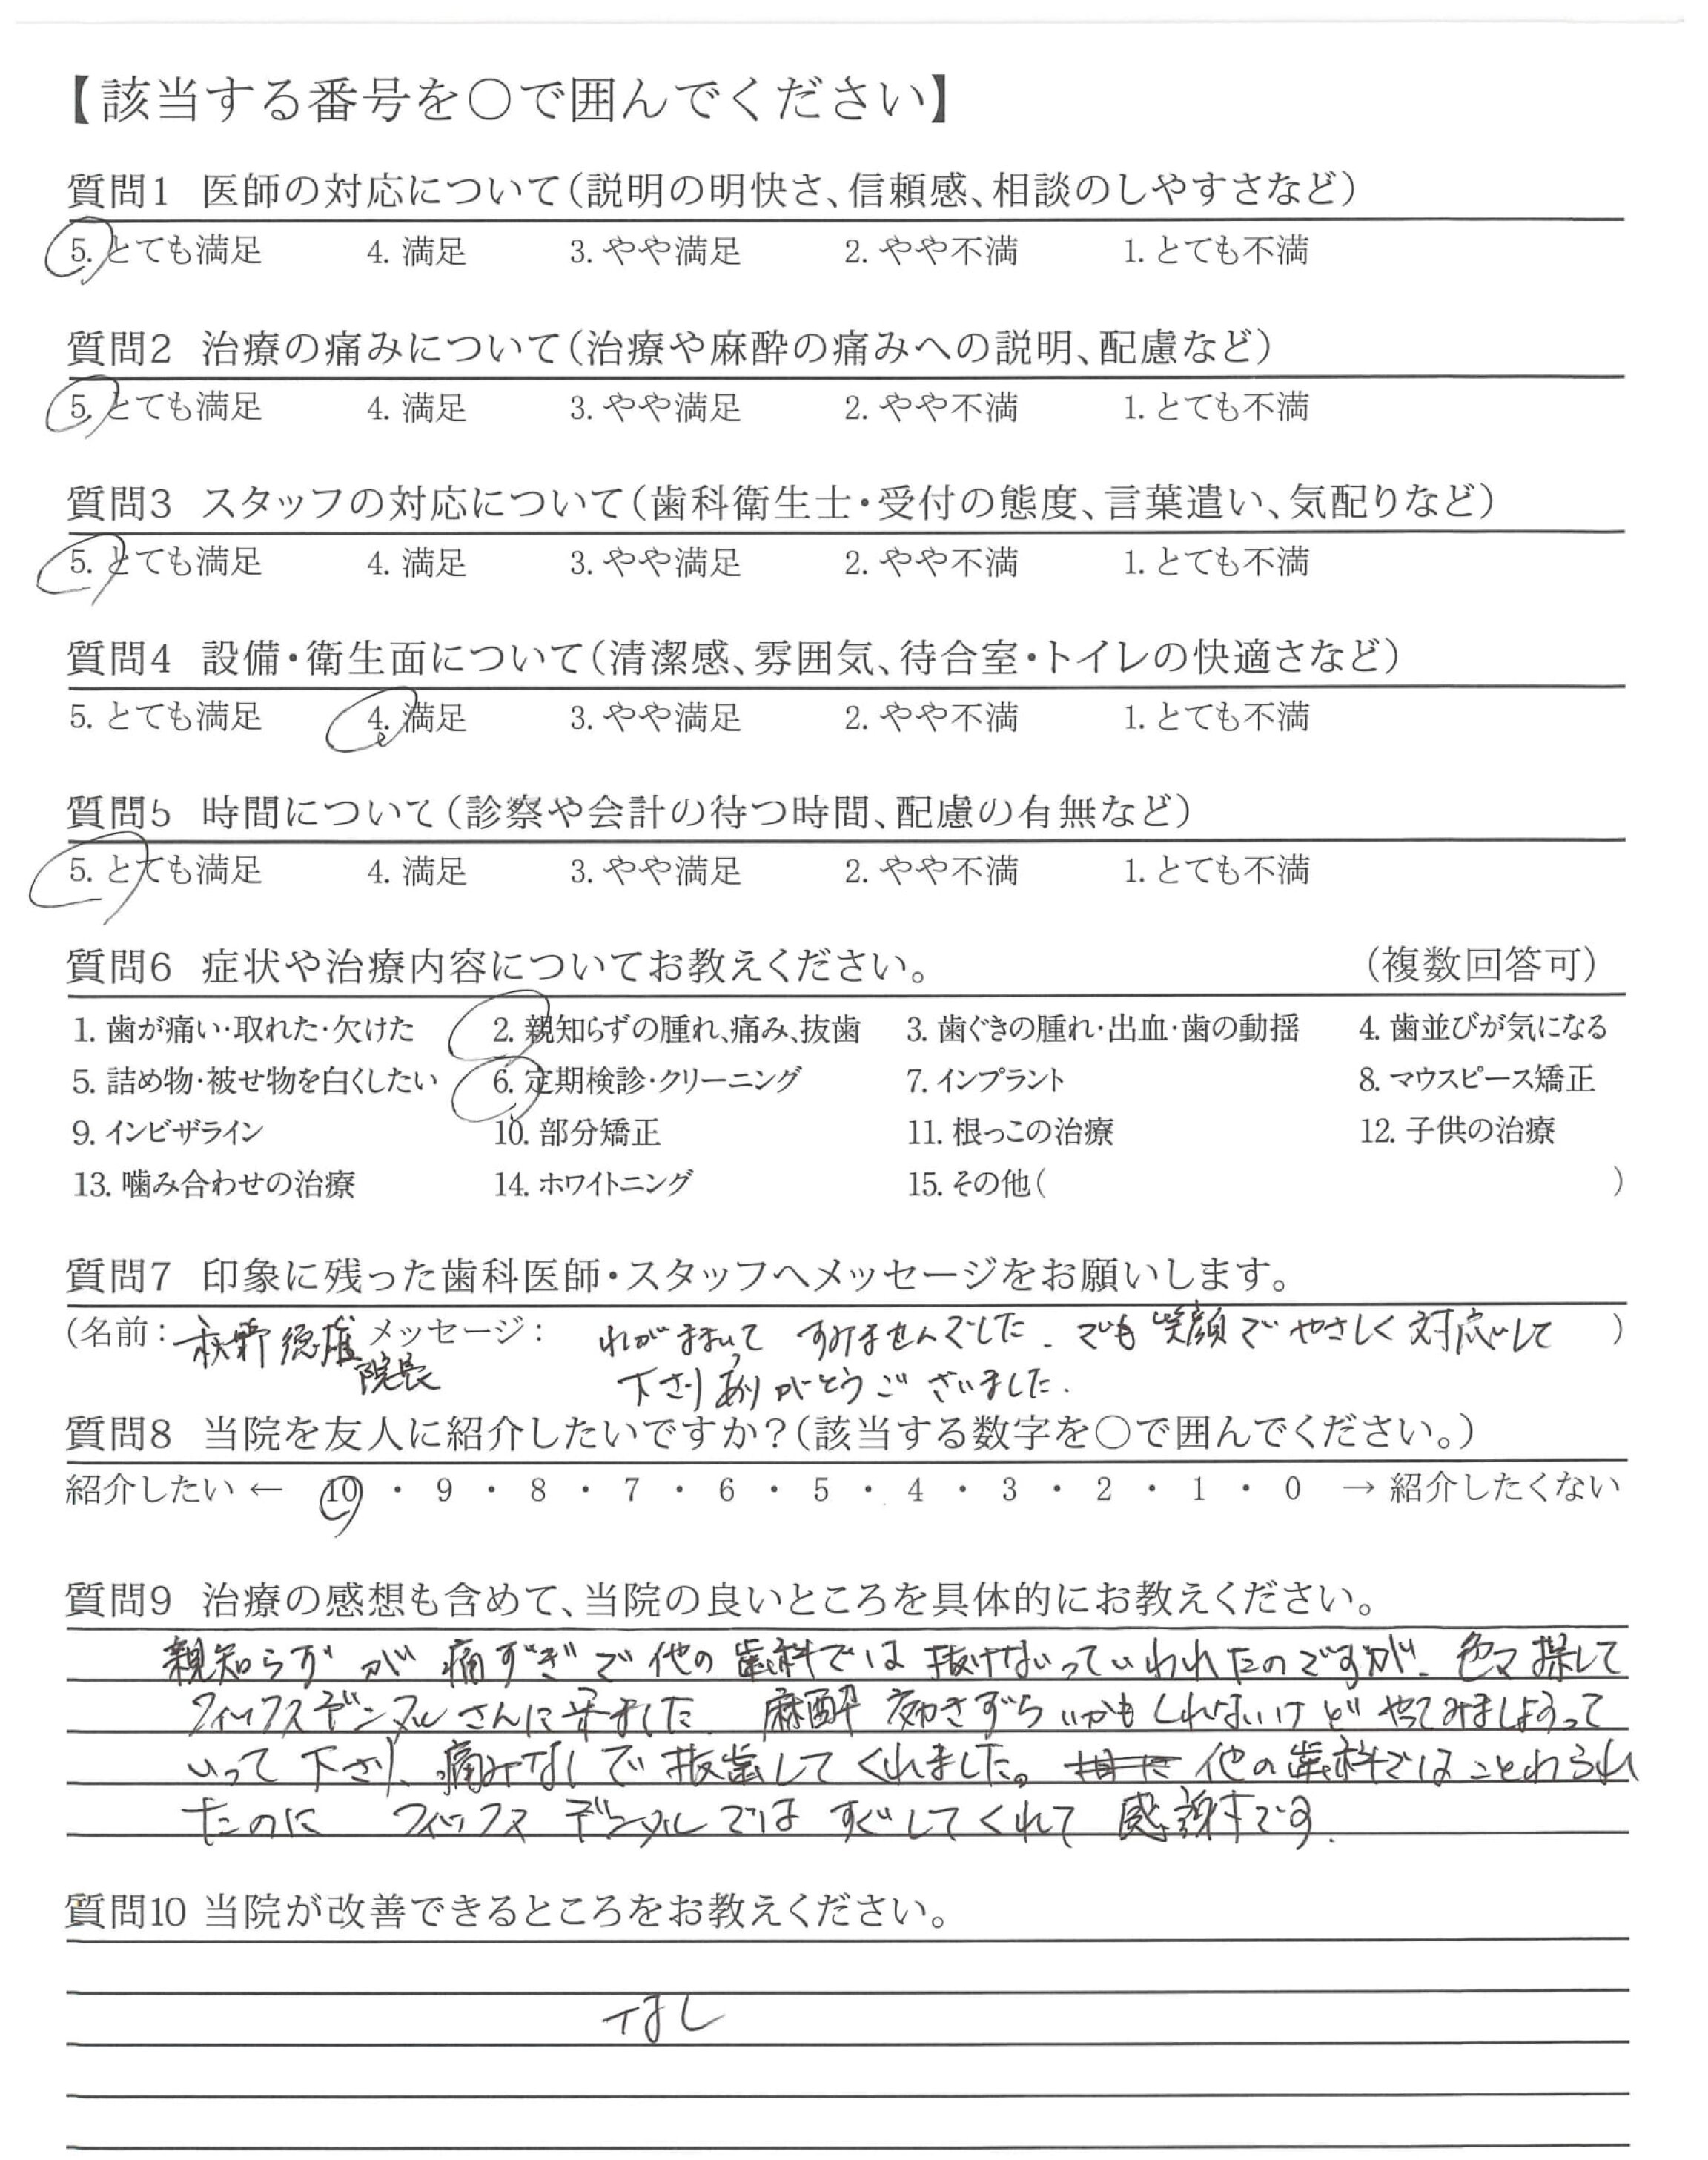 【該当する番号を○で囲んでください】
質問1 医師の対応について(説明の明快さ、信頼感、相談のしやすさなど)
5. とても満足 4. 満足 3. やや満足 2. やや不満 1. とても不満
質問2 治療の痛みについて(治療や麻酔の痛みへの説明、配慮など)
5. とても満足 4. 満足 3. やや満足 2. やや不満 1. とても不満
質問3 スタッフの対応について(歯科衛生士・受付の態度、言葉遣い、気配りなど)
5. とても満足 4. 満足 3. やや満足 2. やや不満 1. とても不満
質問4 設備・衛生面について(清潔感、雰囲気、待合室・トイレの快適さなど)
5. とても満足 4. 満足 3. やや満足 2. やや不満 1. とても不満
質問5 時間について(診察や会計の待つ時間、配慮の有無など)
5. とても満足 4. 満足 3. やや満足 2. やや不満 1. とても不満
質問6 症状や治療内容についてお教えください。 (複数回答可)
1. 歯が痛い・取れた・欠けた 2. 親知らずの腫れ、痛み、抜歯 3. 歯ぐきの腫れ・出血・歯の動揺 4. 歯並びが気になる
5. 詰め物・被せ物を白くしたい 6. 定期検診・クリーニング 7. インプラント 8. マウスピース矯正
9. インビザライン 10. 部分矯正 11. 根っこの治療 12. 子供の治療
13. 噛み合わせの治療 14. ホワイトニング 15. その他( )
質問7 印象に残った歯科医師・スタッフへメッセージをお願いします。
(名前: 秋野徳雄 メッセージ: わがままいって すみませんでした. でも 笑顔で やさしく 対応して )
院長 下さり ありがとうございました.
質問8 当院を友人に紹介したいですか?(該当する数字を○で囲んでください。)
紹介したい ← 10 ・ 9 ・ 8 ・ 7 ・ 6 ・ 5 ・ 4 ・ 3 ・ 2 ・ 1 ・ 0 → 紹介したくない
質問9 治療の感想も含めて、当院の良いところを具体的にお教えください。
親知らずが 痛すぎで 他の歯科では 抜けないっていわれたのですが、色々探して
フィックスデンタルさんに来ました. 麻酔 効きずらいかもしれないけど やってみましょうって
いって下さり、痛みなしで 抜歯してくれました。 他の歯科ではことわられ
たのに フィックス デンタルでは すぐしてくれて 感謝です.
質問10 当院が改善できるところをお教えください。
なし